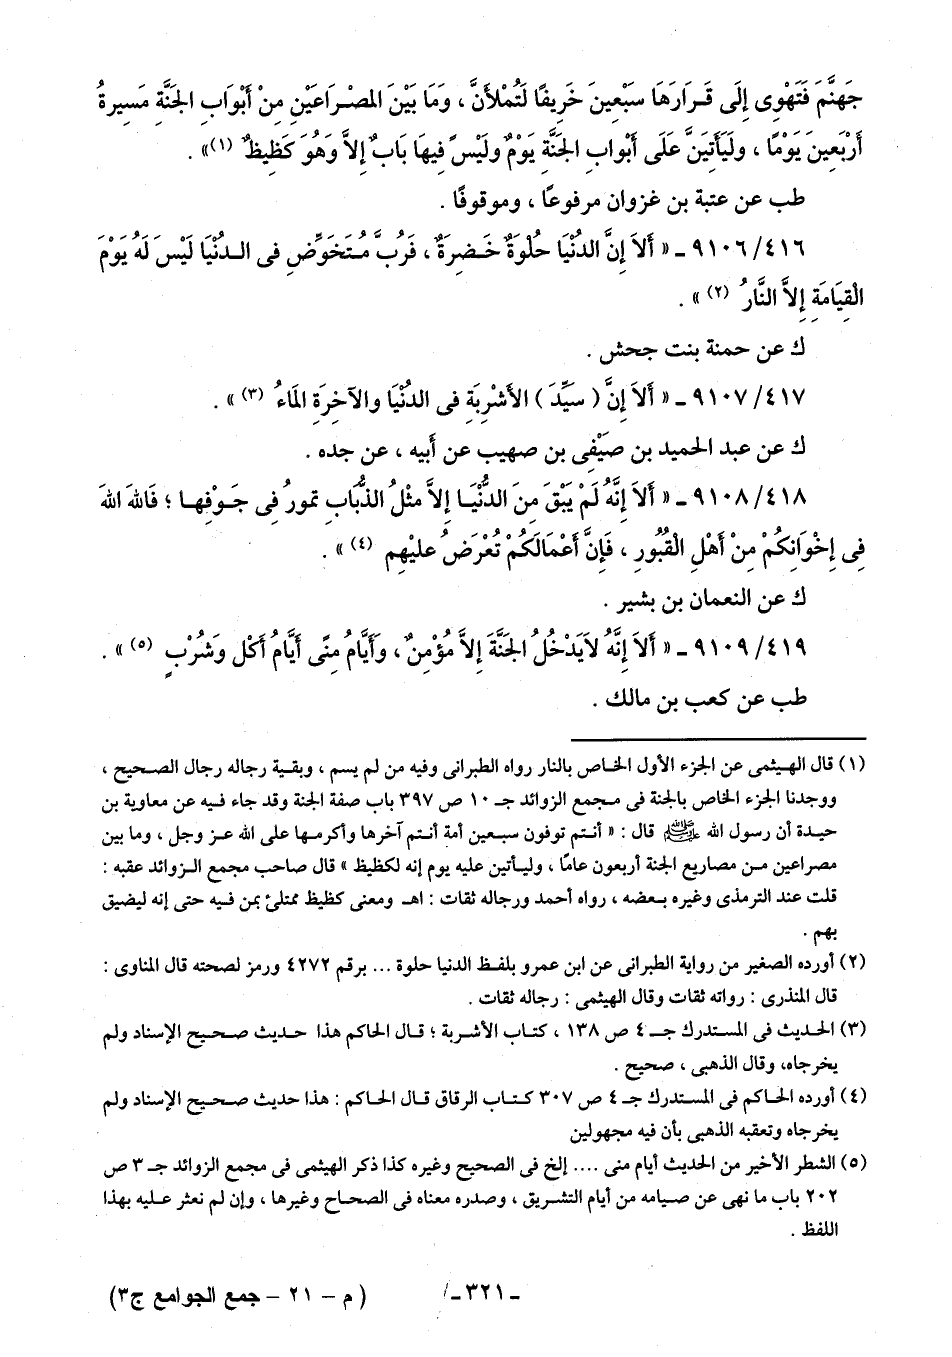 جَهنَّمَ فَتَهْوِى إِلَى قَرارَهَا سَبْعِينَ خَرِيفًا لَتُمْلأَنَّ ، وَمَا بَيْنَ المصْراعَيْنِ مِنْ أَبْوَابِ الجَنَّة مَسِيرةُ
أَرْبَعِينَ يَوْمًا ، ولَيَأتَينَّ عَلَى أَبْوابِ الجنَّةِ يَوْمٌ ولَيْسَ فيهَا بَابٌ إلاَّ وَهُوَ كَظِيظٌ (١)» .
طب عن عتبة بن غزوان مرفوعًا ، وموقوفًا .
٤١٦/ ٩١٠٦ ـ « أَلاَ إِنَّ الدُنْيَا حلْوَةٌ خَضِرَةٌ ، فَرُبَّ مُتَخَوِّضٍ فى الدنْيَا لَيْسَ لَهُ يَوْمَ
الْقِيَامَةِ إِلاَّ النَّارُ (٢)» .
ك عن حمنة بنت جحش .
٤١٧/ ٩١٠٧ ـ « أَلاَ إِنَّ ( سَيِّدَ ) الأَشْرِبَة فى الدُنْيَا والآخِرَةِ المَاءُ (٣)» .
ك عن عبد الحميد بن صَيْفى بن صهيب عن أبيه ، عن جده .
٤١٨/ ٩١٠٨ ـ « أَلاَ إِنَّهُ لَمْ يَبْقَ مِنَ الدُّنْيَا إِلاَّ مثْلُ الذُّبَاب تمورُ فِى جَوْفِهَا ؛ فَاللهَ اللهَ
فِى إِخْوَانِكُمْ مِنْ أَهْلِ الْقُبُورِ ، فَإِنَّ أَعْمَالَكُمْ تُعْرَضُ عليْهِم (٤)» .
ك عن النعمان بن بشير .
٤١٩/ ٩١٠٩ ـ « أَلاَ إِنَّهُ لاَيَدْخُلُ الجنَّةَ إِلاَّ مُؤْمِنٌ ، وَأَيَّامُ مِنًى أَيَّامُ أَكْل وَشُرْبٍ (٥)» .
طب عن كعب بن مالك .
(١) قال الهيثمى عن الجزء الأول الخاص بالنار رواه الطبرانى وفيه من لم يسم ، وبقية رجاله رجال الصحيح ،
ووجدنا الجزء الخاص بالجنة فى مجمع الزوائد جـ ١٠ ص ٣٩٧ باب صفة الجنة وقد جاء فيه عن معاوية بن
حيدة أن رسول الله ﷺ قال : « أنتم توفون سبعين أمة أنتم آخرها وأكرمها على الله عز وجل ، وما بين
مصراعين من مصاريع الجنة أربعون عامًا ، وليأتين عليه يوم إنه لكظيظ » قال صاحب مجمع الزوائد عقبه :
قلت عند الترمذى وغيره بعضه ، رواه أحمد ورجاله ثقات : اهـ ومعنى كظيظ ممتلئ بمن فيه حتى إنه ليضيق
بهم .
(٢) أورده الصغير من رواية الطبرانى عن ابن عمرو بلفظ الدنيا حلوة ... برقم ٤٢٧٢ ورمز لصحته قال المناوى :
قال المنذرى : رواته ثقات وقال الهيثمى : رجاله ثقات .
(٣) الحديث فى المستدرك جـ ٤ ص ١٣٨ ، كتاب الأشربة ؛ قال الحاكم هذا حديث صحيح الإسناد ولم
يخرجاه، وقال الذهبى ، صحيح .
(٤) أورده الحاكم فى المستدرك جـ ٤ ص ٣٠٧ كتاب الرقاق قال الحاكم : هذا حديث صحيح الإسناد ولم
يخرجاه وتعقبه الذهبى بأن فيه مجهولين
(٥) الشطر الأخير من الحديث أيام منى .... إلخ فى الصحيح وغيره كذا ذكر الهيثمى فى مجمع الزوائد جـ ٣ ص
٢٠٢ باب ما نهى عن صيامه من أيام التشريق ، وصدره معناه فى الصحاح وغيرها ، وإن لم نعثر عليه بهذا
اللفظ .
ـ ٣٢١ ـ ( م – ٢١ – جمع الجوامع ج٣)